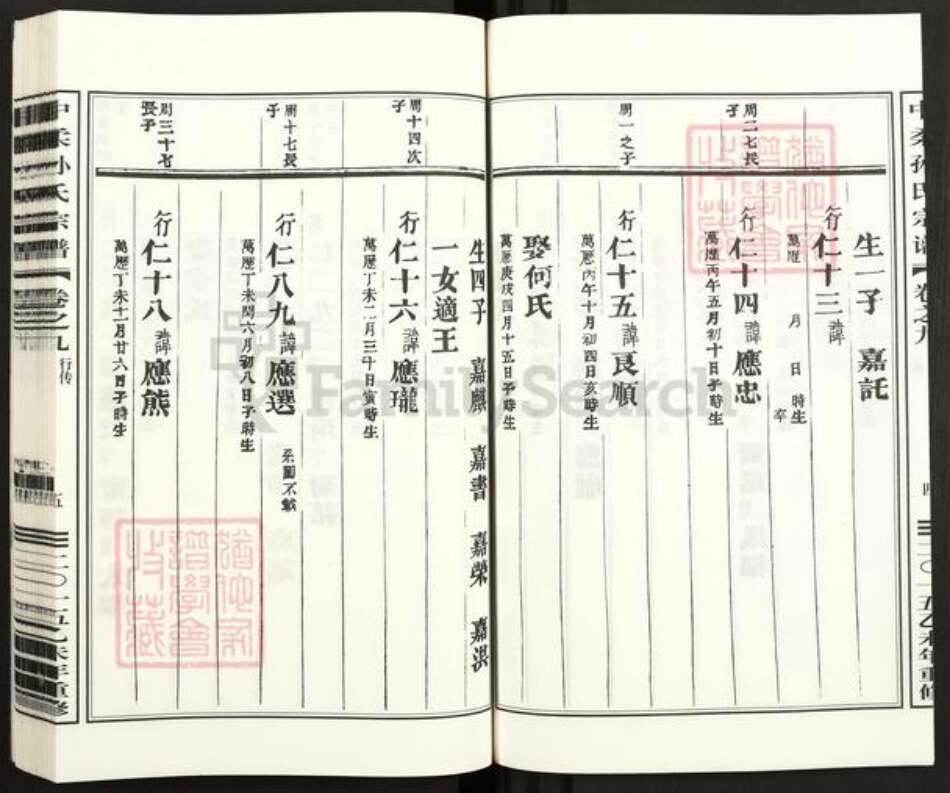 中柔孙氏宗谱【卷之九
四
二〇一五乙未年重修
生一子 嘉託
行仁十三諱
萬歷 月 日 時生
卒
周二七長子
行仁十四諱應忠
萬歷丙午五月初十日子時生
周一之子
行仁十五諱良順
萬歷丙午十月初四日亥時生
娶何氏
萬歷庚戌四月十五日子時生
生四子 嘉麒 嘉書 嘉榮 嘉洪
一女適王
周十四次子
行仁十六諱應瓏
萬歷丁未二月三十日寅時生
周十七長子
行仁八九諱應選
萬歷丁未閏六月初八日子時生
系圖不載
周三十有
長子
行仁十八諱應熊
萬歷丁未十二月廿六日子時生
中柔孙氏宗谱【卷之九
行传
五
二〇一五乙未年重修
FamilySearch